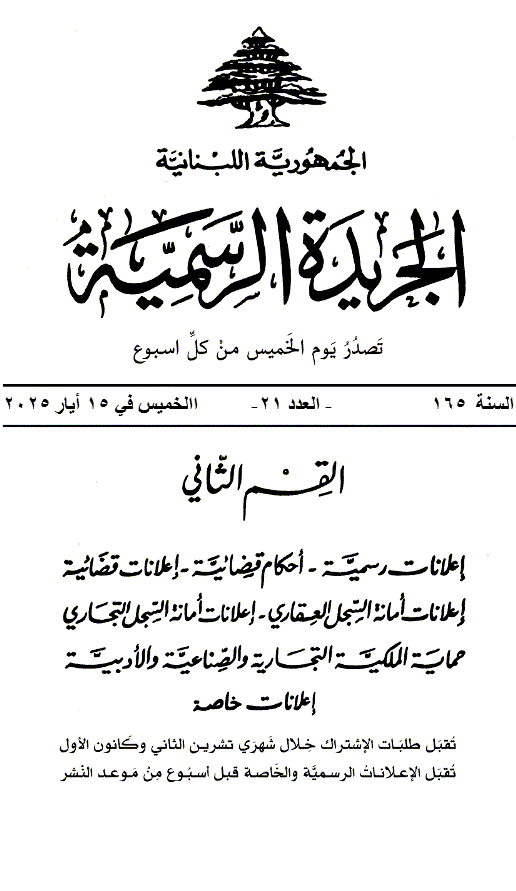 الجُمهُوريَّة اللبْنانيَّة
الجَريدَة الرسَّمِيَّة
تَصدُرُ يَوم الخَميس منْ كلِّ اسبوع
السنة ١٦٥
- العدد ٢١-
االخميس في ١٥ أيار ٢٠٢٥
القِسْم الثّاني
إعلانات رسميَّة - أحكام قضائيَّة - إعلانات قضائية
إعلانات أمانة السِّجل العقاري - إعلانات أمانة السِّجل التجاري
حماية الملكيَّة التجارية والصِّناعيَّة والأدبيَّة
إعلانات خاصة
تُقبَل طلبَات الإشتراك خِلال شَهرَي تشرين الثاني وكَانون الأول
تُقبَل الإعلاناتُ الرسميَّة والخَاصة قبل أسبُوع مِنْ مَوعد النَشر